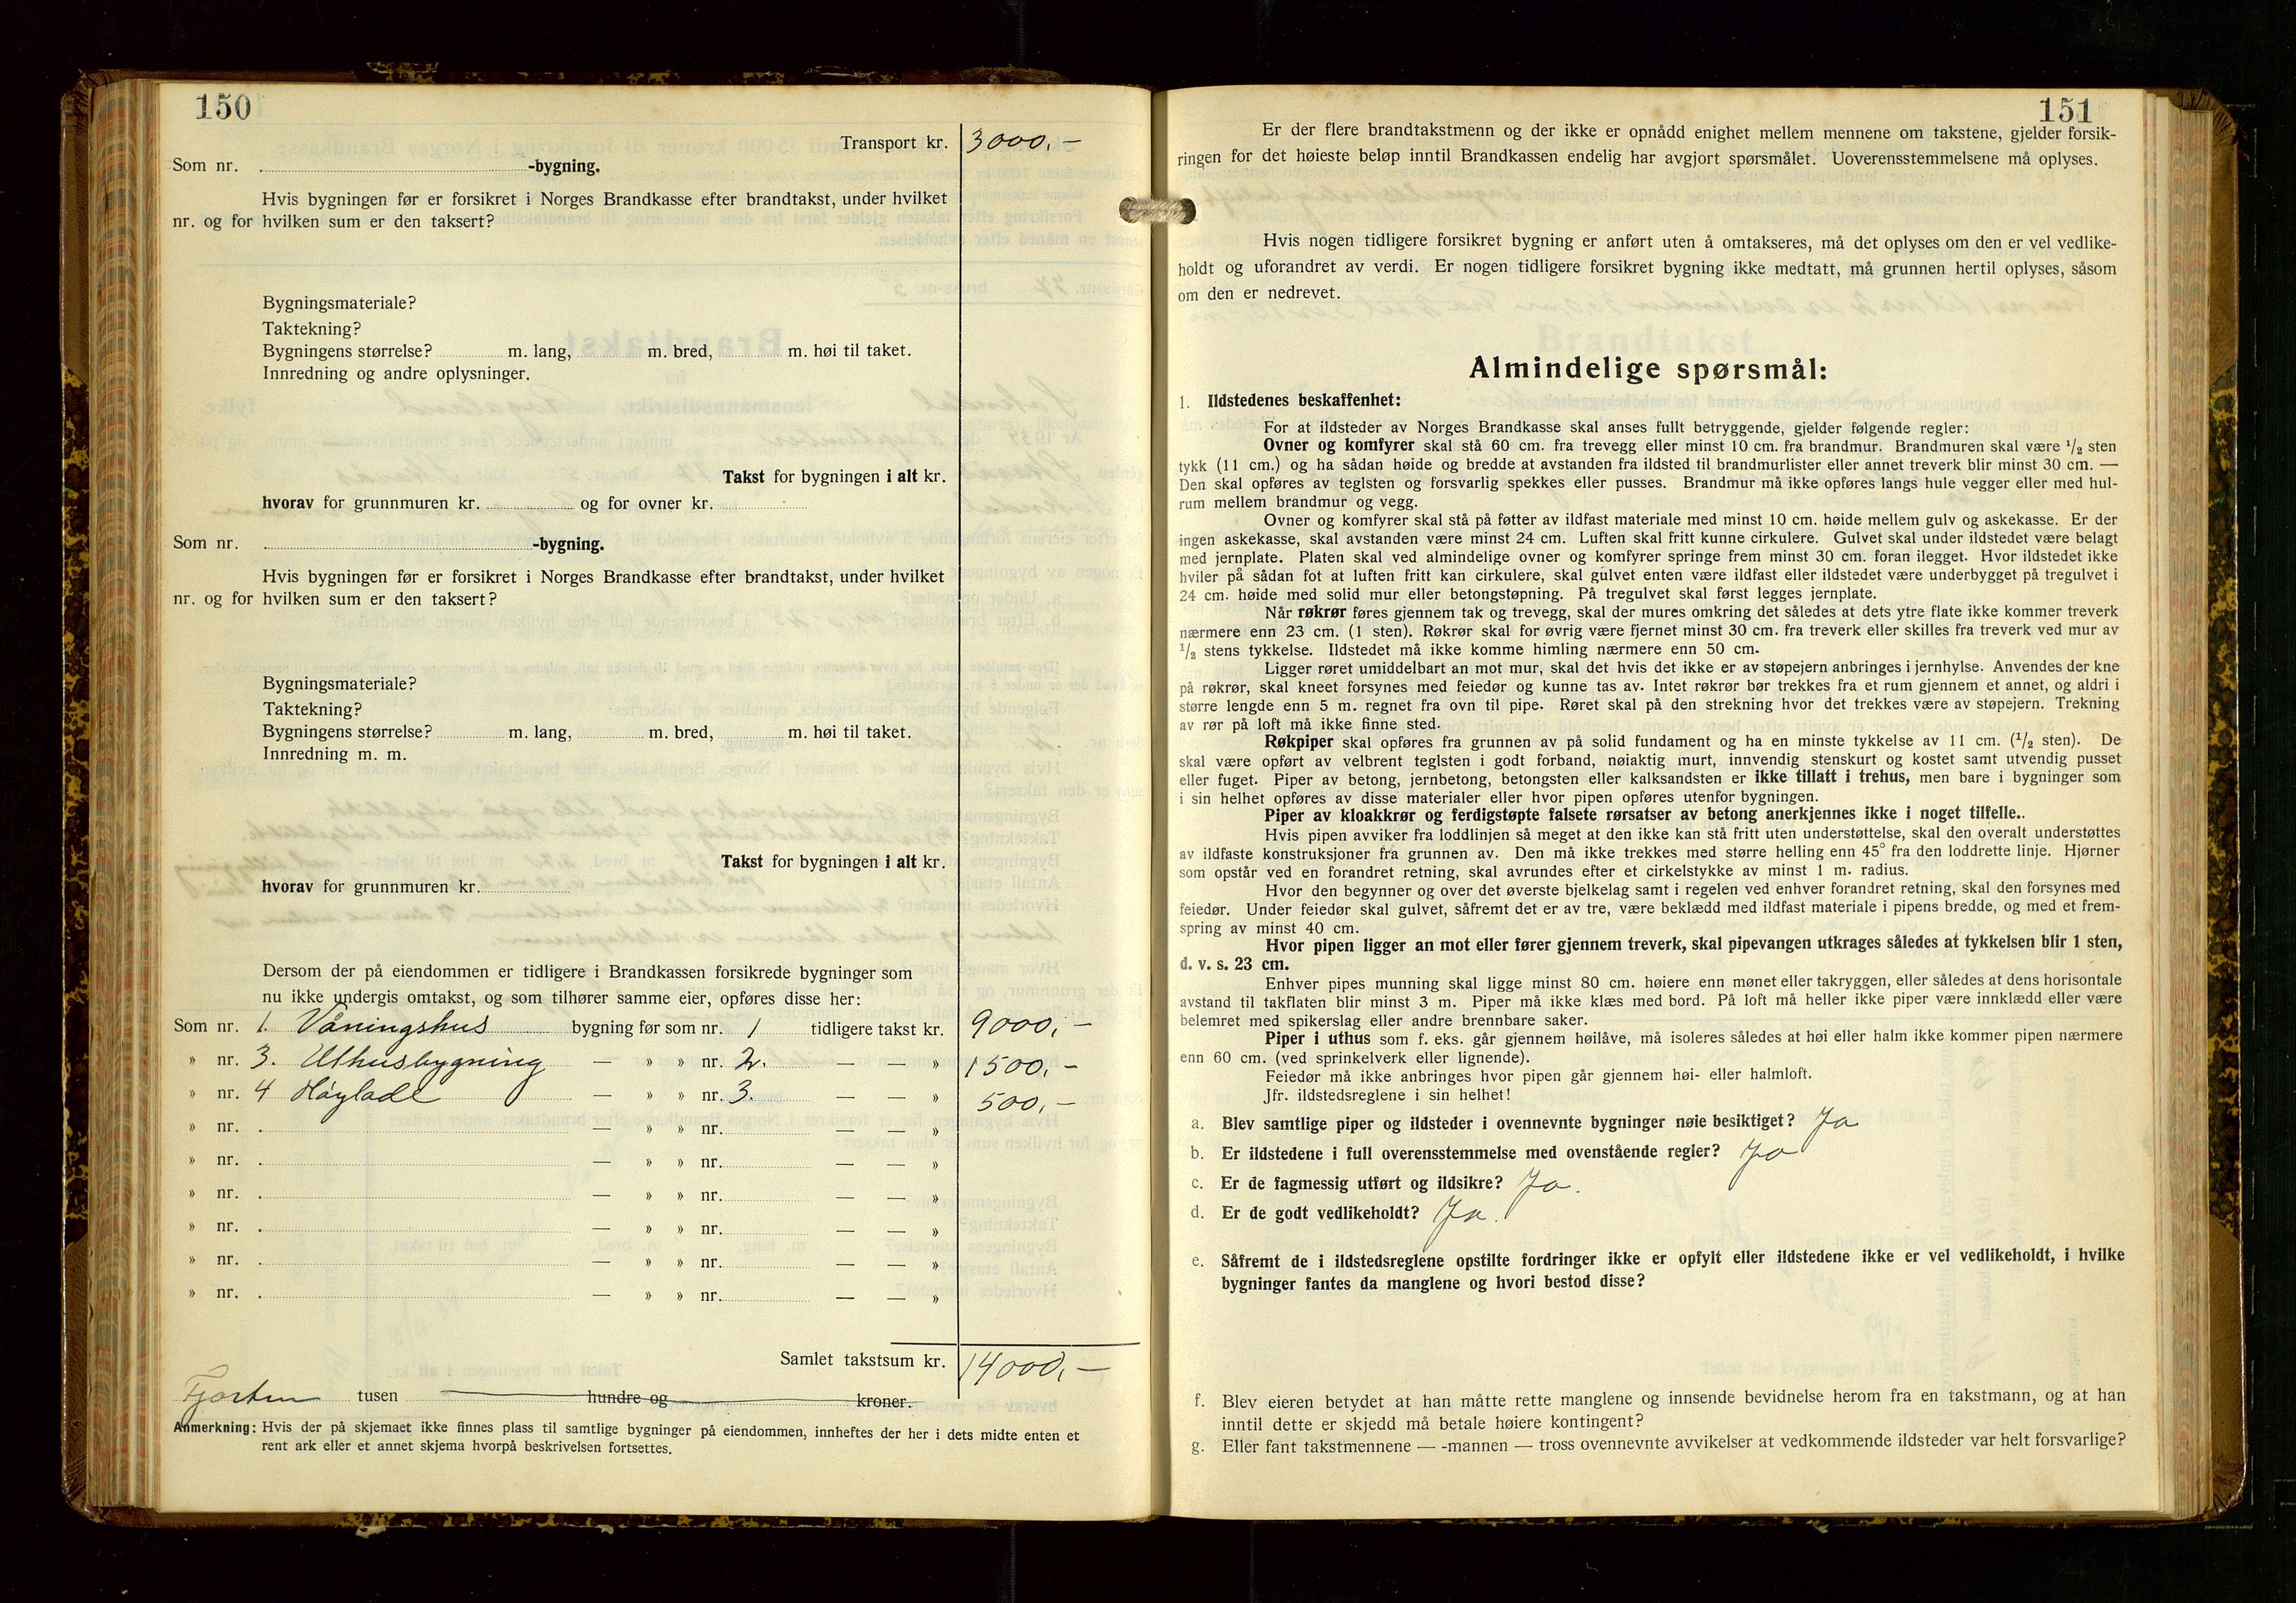 150
Transport kr. 3000,-
Som nr. -bygning.
Hvis bygningen før er forsikret i Norges Brandkasse efter brandtakst, under hvilket
nr. og for hvilken sum er den taksert?
Bygningsmateriale?
Taktekning?
Bygningens størrelse? m. lang, m. bred, m. høi til taket.
Innredning og andre oplysninger.
Takst for bygningen i alt kr.
hvorav for grunnmuren kr. og for ovner kr.
Som nr. -bygning.
Hvis bygningen før er forsikret i Norges Brandkasse efter brandtakst, under hvilket
nr. og for hvilken sum er den taksert?
Bygningsmateriale?
Taktekning?
Bygningens størrelse? m. lang, m. bred, m. høi til taket.
Innredning m. m.
Takst for bygningen i alt kr.
hvorav for grunnmuren kr.
Dersom der på eiendommen er tidligere i Brandkassen forsikrede bygninger som
nu ikke undergis omtakst, og som tilhører samme eier, opføres disse her:
Som nr. 1. Våningshus bygning før som nr. 1 tidligere takst kr. 9000,-
» nr. 3. Uthusbygning — » » nr. 2. — — » 1500,-
» nr. 4 Høylade — » » nr. 3. — — » 500,-
» nr. . — » » nr. — — »
» nr. . — » » nr. — — »
» nr. . — » » nr. — — »
» nr. . — » » nr. — — »
» nr. . — » » nr. — — »
» nr. . — » » nr. — — »
Samlet takstsum kr. 14000,-
Fjorten tusen hundre og kroner.
Anmerkning: Hvis der på skjemaet ikke finnes plass til samtlige bygninger på eiendommen, innheftes der her i dets midte enten et
rent ark eller et annet skjema hvorpå beskrivelsen fortsettes.
151
Er der flere brandtakstmenn og der ikke er opnådd enighet mellem mennene om takstene, gjelder forsik-
ringen for det høieste beløp inntil Brandkassen endelig har avgjort spørsmålet. Uoverensstemmelsene må oplyses.
Hvis nogen tidligere forsikret bygning er anført uten å omtakseres, må det oplyses om den er vel vedlike-
holdt og uforandret av verdi. Er nogen tidligere forsikret bygning ikke medtatt, må grunnen hertil oplyses, såsom
om den er nedrevet.
Almindelige spørsmål:
1. Ildstedenes beskaffenhet:
For at ildsteder av Norges Brandkasse skal anses fullt betryggende, gjelder følgende regler:
Ovner og komfyrer skal stå 60 cm. fra trevegg eller minst 10 cm. fra brandmur. Brandmuren skal være 1/2 sten
tykk (11 cm.) og ha sådan høide og bredde at avstanden fra ildsted til brandmurlister eller annet treverk blir minst 30 cm. —
Den skal opføres av teglsten og forsvarlig spekkes eller pusses. Brandmur må ikke opføres langs hule vegger eller med hul-
rum mellem brandmur og vegg.
Ovner og komfyrer skal stå på føtter av ildfast materiale med minst 10 cm. høide mellem gulv og askekasse. Er der
ingen askekasse, skal avstanden være minst 24 cm. Luften skal fritt kunne cirkulere. Gulvet skal under ildstedet være belagt
med jernplate. Platen skal ved almindelige ovner og komfyrer springe frem minst 30 cm. foran ilegget. Hvor ildstedet ikke
hviler på sådan fot at luften fritt kan cirkulere, skal gulvet enten være ildfast eller ildstedet være underbygget på tregulvet i
24 cm. høide med solid mur eller betongstøpning. På tregulvet skal først legges jernplate.
Når røkrør føres gjennem tak og trevegg, skal der mures omkring det således at dets ytre flate ikke kommer treverk
nærmere enn 23 cm. (1 sten). Røkrør skal for øvrig være fjernet minst 30 cm. fra treverk eller skilles fra treverk ved mur av
1/2 stens tykkelse. Ildstedet må ikke komme himling nærmere enn 50 cm.
Ligger røret umiddelbart an mot mur, skal det hvis det ikke er av støpejern anbringes i jernhylse. Anvendes der kne
på røkrør, skal kneet forsynes med feiedør og kunne tas av. Intet røkrør bør trekkes fra et rum gjennem et annet, og aldri i
større lengde enn 5 m. regnet fra ovn til pipe. Røret skal på den strekning hvor det trekkes være av støpejern. Trekning
av rør på loft må ikke finne sted.
Røkpiper skal opføres fra grunnen av på solid fundament og ha en minste tykkelse av 11 cm. (1/2 sten). De
skal være opført av velbrent teglsten i godt forband, nøiaktig murt, innvendig stenskurt og kostet samt utvendig pusset
eller fuget. Piper av betong, jernbetong, betongsten eller kalksandsten er ikke tillatt i trehus, men bare i bygninger som
i sin helhet opføres av disse materialer eller hvor pipen opføres utenfor bygningen.
Piper av kloakkrør og ferdigstøpte falsete rørsatser av betong anerkjennes ikke i noget tilfelle..
Hvis pipen avviker fra loddlinjen så meget at den ikke kan stå fritt uten understøttelse, skal den overalt understøttes
av ildfaste konstruksjoner fra grunnen av. Den må ikke trekkes med større helling enn 45° fra den loddrette linje. Hjørner
som opstår ved en forandret retning, skal avrundes efter et cirkelstykke av minst 1 m. radius.
Hvor den begynner og over det øverste bjelkelag samt i regelen ved enhver forandret retning, skal den forsynes med
feiedør. Under feiedør skal gulvet, såfremt det er av tre, være beklædd med ildfast materiale i pipens bredde, og med et frem-
spring av minst 40 cm.
Hvor pipen ligger an mot eller fører gjennem treverk, skal pipevangen utkrages således at tykkelsen blir 1 sten,
d. v. s. 23 cm.
Enhver pipes munning skal ligge minst 80 cm. høiere enn mønet eller takryggen, eller således at dens horisontale
avstand til takflaten blir minst 3 m. Piper må ikke klæs med bord. På loft må heller ikke piper være innklædd eller være
belemret med spikerslag eller andre brennbare saker.
Piper i uthus som f. eks. går gjennem høilåve, må isoleres således at høi eller halm ikke kommer pipen nærmere
enn 60 cm. (ved sprinkelverk eller lignende).
Feiedør må ikke anbringes hvor pipen går gjennem høi- eller halmloft.
Jfr. ildstedsreglene i sin helhet!
a. Blev samtlige piper og ildsteder i ovennevnte bygninger nøie besiktiget? Ja
b. Er ildstedene i full overensstemmelse med ovenstående regler? Ja
c. Er de fagmessig utført og ildsikre? Ja.
d. Er de godt vedlikeholdt? Ja.
e. Såfremt de i ildstedsreglene opstilte fordringer ikke er opfylt eller ildstedene ikke er vel vedlikeholdt, i hvilke
bygninger fantes da manglene og hvori bestod disse?
f. Blev eieren betydet at han måtte rette manglene og innsende bevidnelse herom fra en takstmann, og at han
inntil dette er skjedd må betale høiere kontingent?
g. Eller fant takstmennene — -mannen — tross ovennevnte avvikelser at vedkommende ildsteder var helt forsvarlige?